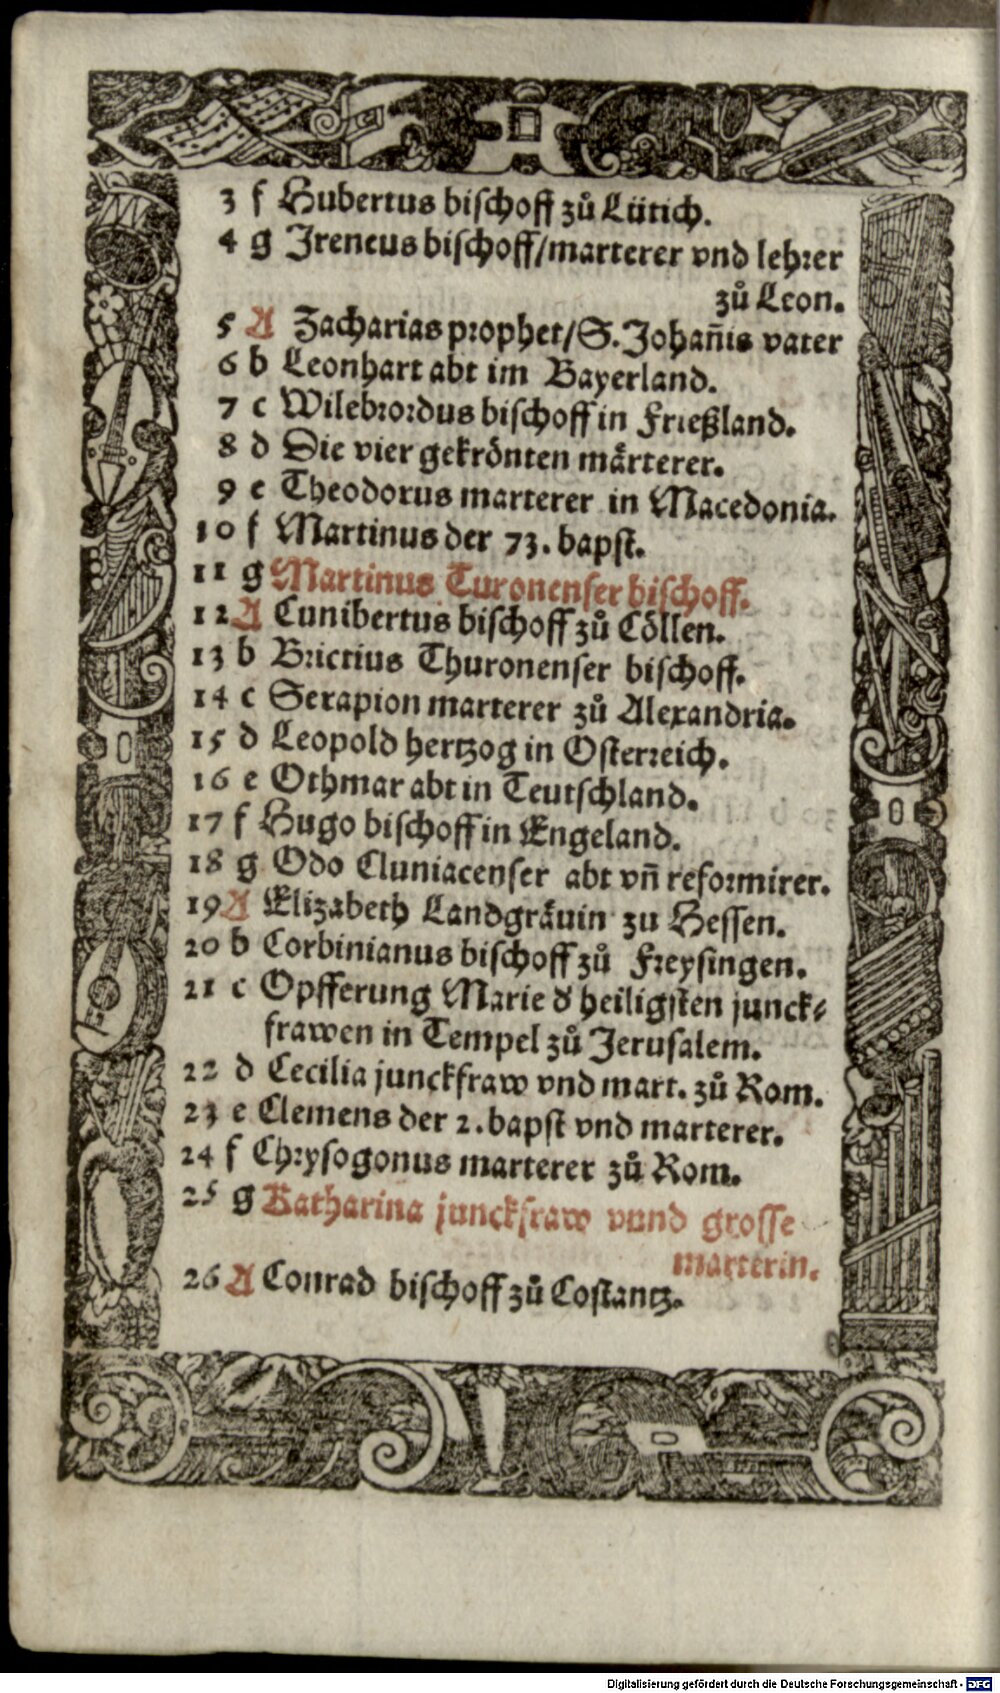 3 f Hubertus bischoff zů Lütich.
4 g Ireneus bischoff/marterer vnd lehrer
zů Leon.
5 A Zacharias prophet/S. Johan̄is vater
6 b Leonhart abt im Bayerland.
7 c Wilebrordus bischoff in Frießland.
8 d Die vier gekrönten märterer.
9 e Theodorus marterer in Macedonia.
10 f Martinus der 73. bapst.
11 g Martinus Turonenser bischoff.
12 A Cunibertus bischoff zů Cöllen.
13 b Brictius Thuronenser bischoff.
14 c Serapion marterer zů Alexandria.
15 d Leopold hertzog in Osterreich.
16 e Othmar abt in Teutschland.
17 f Hugo bischoff in Engeland.
18 g Odo Cluniacenser abt vn̄ reformirer.
19 A Elizabeth Landgräuin zu Hessen.
20 b Corbinianus bischoff zů Freysingen.
21 c Opfferung Marie d' heiligsten junck⸗
frawen in Tempel zů Jerusalem.
22 d Cecilia junckfraw vnd mart. zů Rom.
23 e Clemens der 2. bapst vnd marterer.
24 f Chrysogonus marterer zů Rom.
25 g Katharina junckfraw vnnd grosse
marterin.
26 A Conrad bischoff zů Costantz.
Digitalisierung gefördert durch die Deutsche Forschungsgemeinschaft - DFG